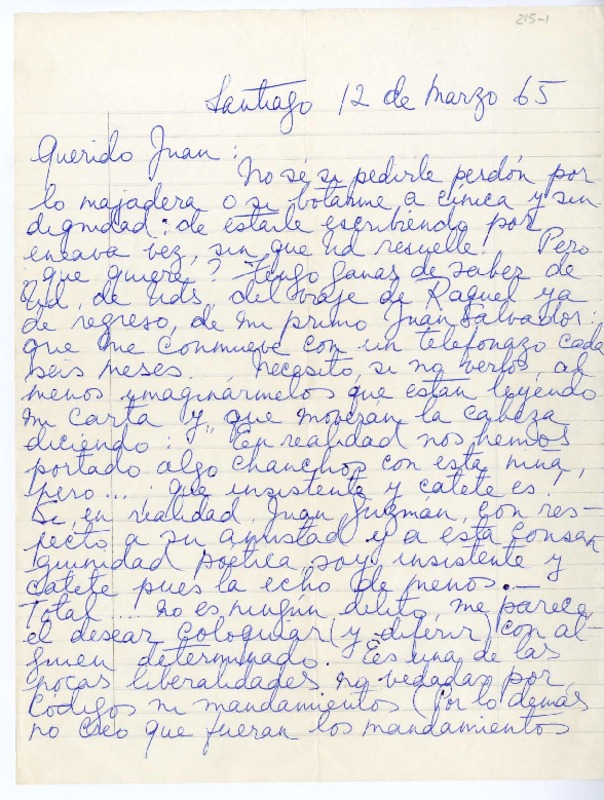 215-1
Santiago 12 de Marzo 65
Querido Juan:
No sé si pedirle perdón por
lo majadera o si botarme a cínica y sin
dignidad: de estarle escribiendo por
eneava vez, sin que Ud resuelle. Pero
¿que quiere? Tengo ganas de saber de
Ud, de Uds, del viaje de Raquel ya
de regreso, de mi primo Juan Salvador:
que me conmueve con un telefonazo cada
seis meses. Necesito, si no verlos, al
menos imaginármelos que están leyendo
mi carta y que moverán la cabeza
diciendo: "En realidad nos hemos
portado algo chanchos con esta niña,
pero... que insistente y catete es!
Si, en realidad, Juan Guzmán, con res-
pecto a su amistad y a esta consan
guinidad poética, soy insistente y
catete pues la echo de menos.—
Total... no es ningún delito, me parece,
el desear coloquiar (y diferir) con al-
guien determinado. Es una de las
pocas liberalidades no vedadas por
Códigos ni mandamientos (Por lo demás
no creo que fueran los mandamientos